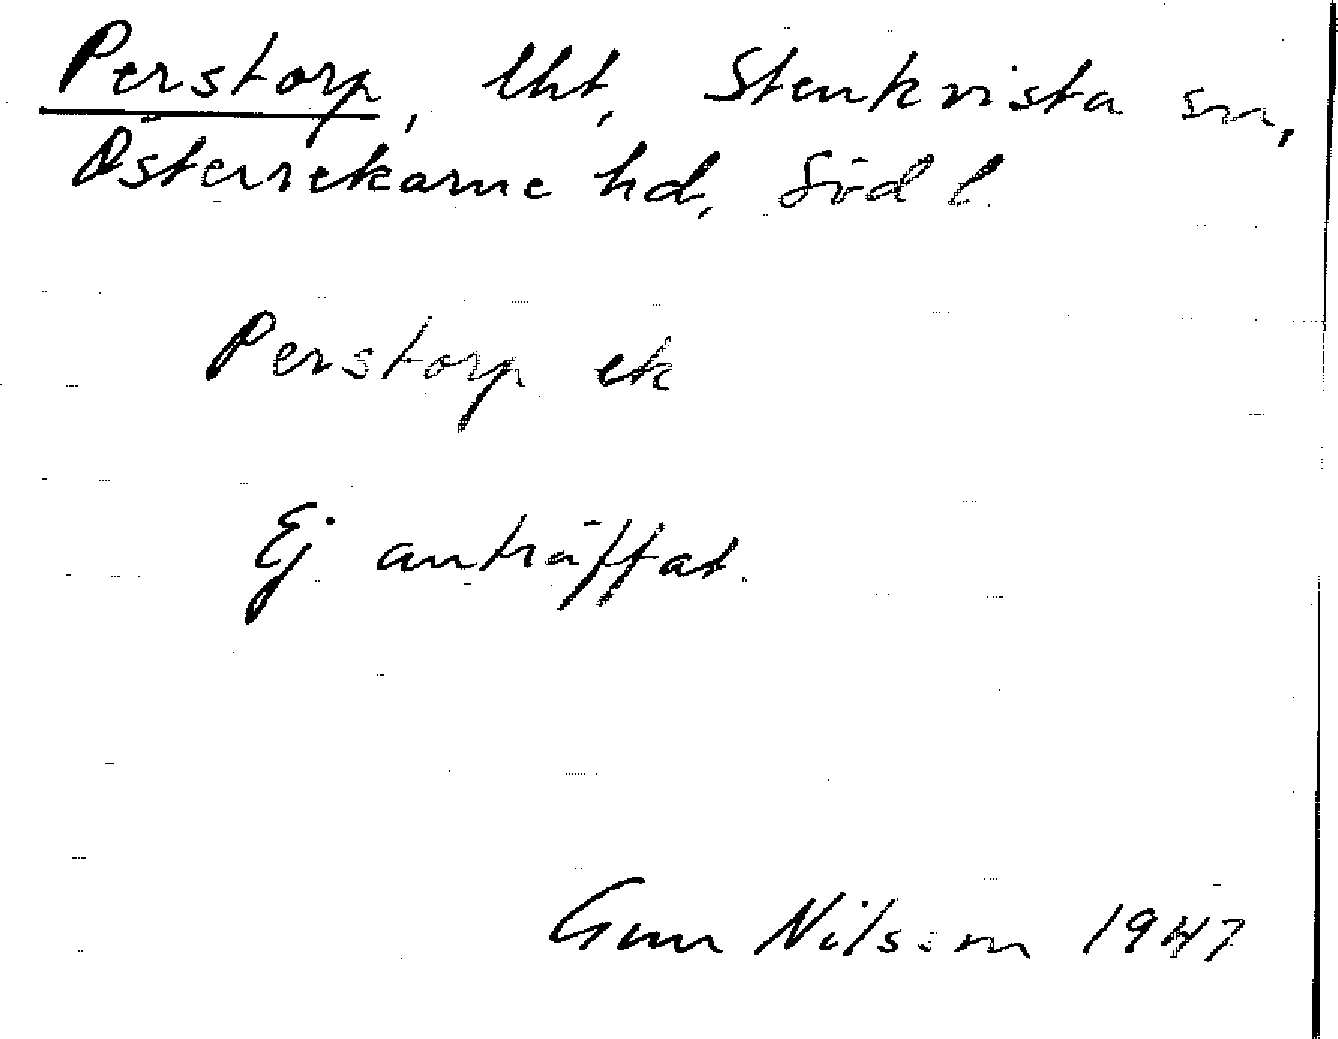 Perstorp, lht, Stenkvista sn,
Österrekarne hd, Söd l.
Perstorp ek
Ej anträffat.
Gun Nilsson 1947